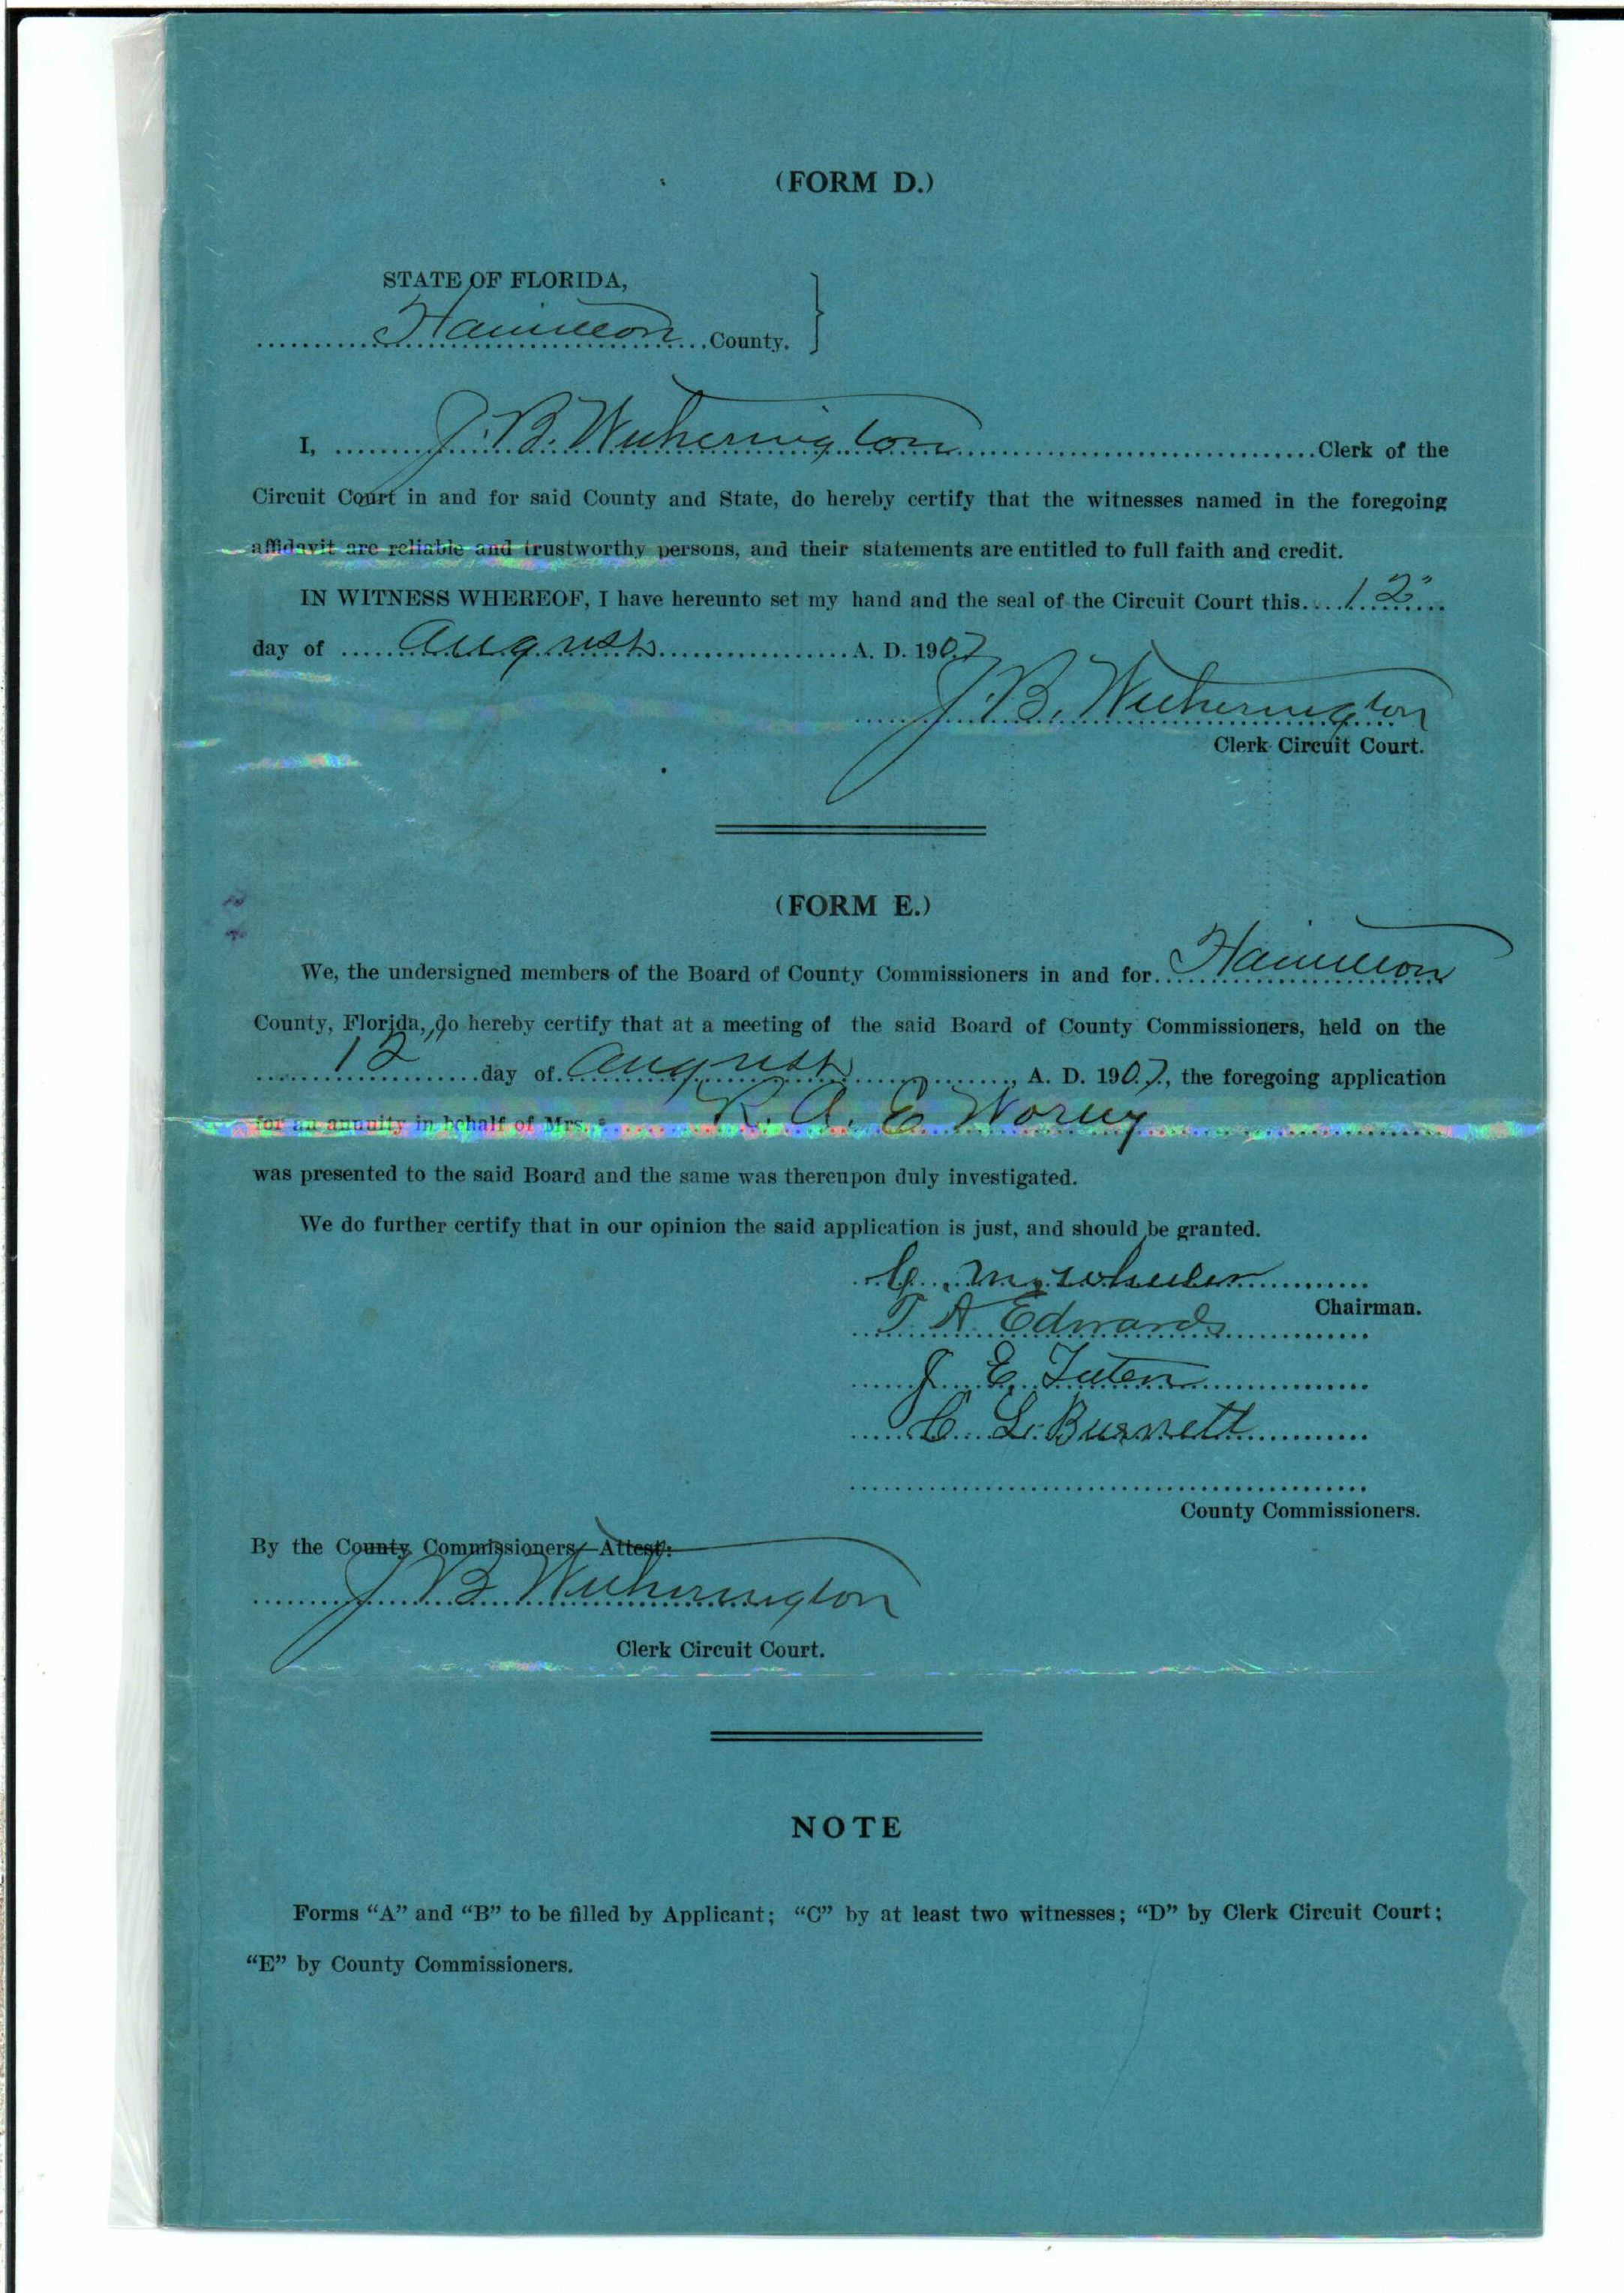 (FORM D.)
STATE OF FLORIDA,
Hamilton County.
I, J. B. Witherington Clerk of the
Circuit Court in and for said County and State, do hereby certify that the witnesses named in the foregoing
affidavit are reliable and trustworthy persons, and their statements are entitled to full faith and credit.
IN WITNESS WHEREOF, I have hereunto set my hand and the seal of the Circuit Court this 12"
day of August A. D. 1907
J. B. Witherington
Clerk Circuit Court.
(FORM E.)
We, the undersigned members of the Board of County Commissioners in and for Hamilton
County, Florida, do hereby certify that at a meeting of the said Board of County Commissioners, held on the
12" day of August, A. D. 1907, the foregoing application
for an annuity in behalf of Mrs. R. A. E
was presented to the said Board and the same was thereupon duly investigated.
We do further certify that in our opinion the said application is just, and should be granted.
C. M. Wheeler
Chairman.
T. A. Edwards
J. E. Tuten
C. L. Burnett
County Commissioners.
By the County Commissioners—Attest:
J B Witherington
Clerk Circuit Court.
NOTE
Forms “A” and “B” to be filled by Applicant; “C” by at least two witnesses; “D” by Clerk Circuit Court;
“E” by County Commissioners.